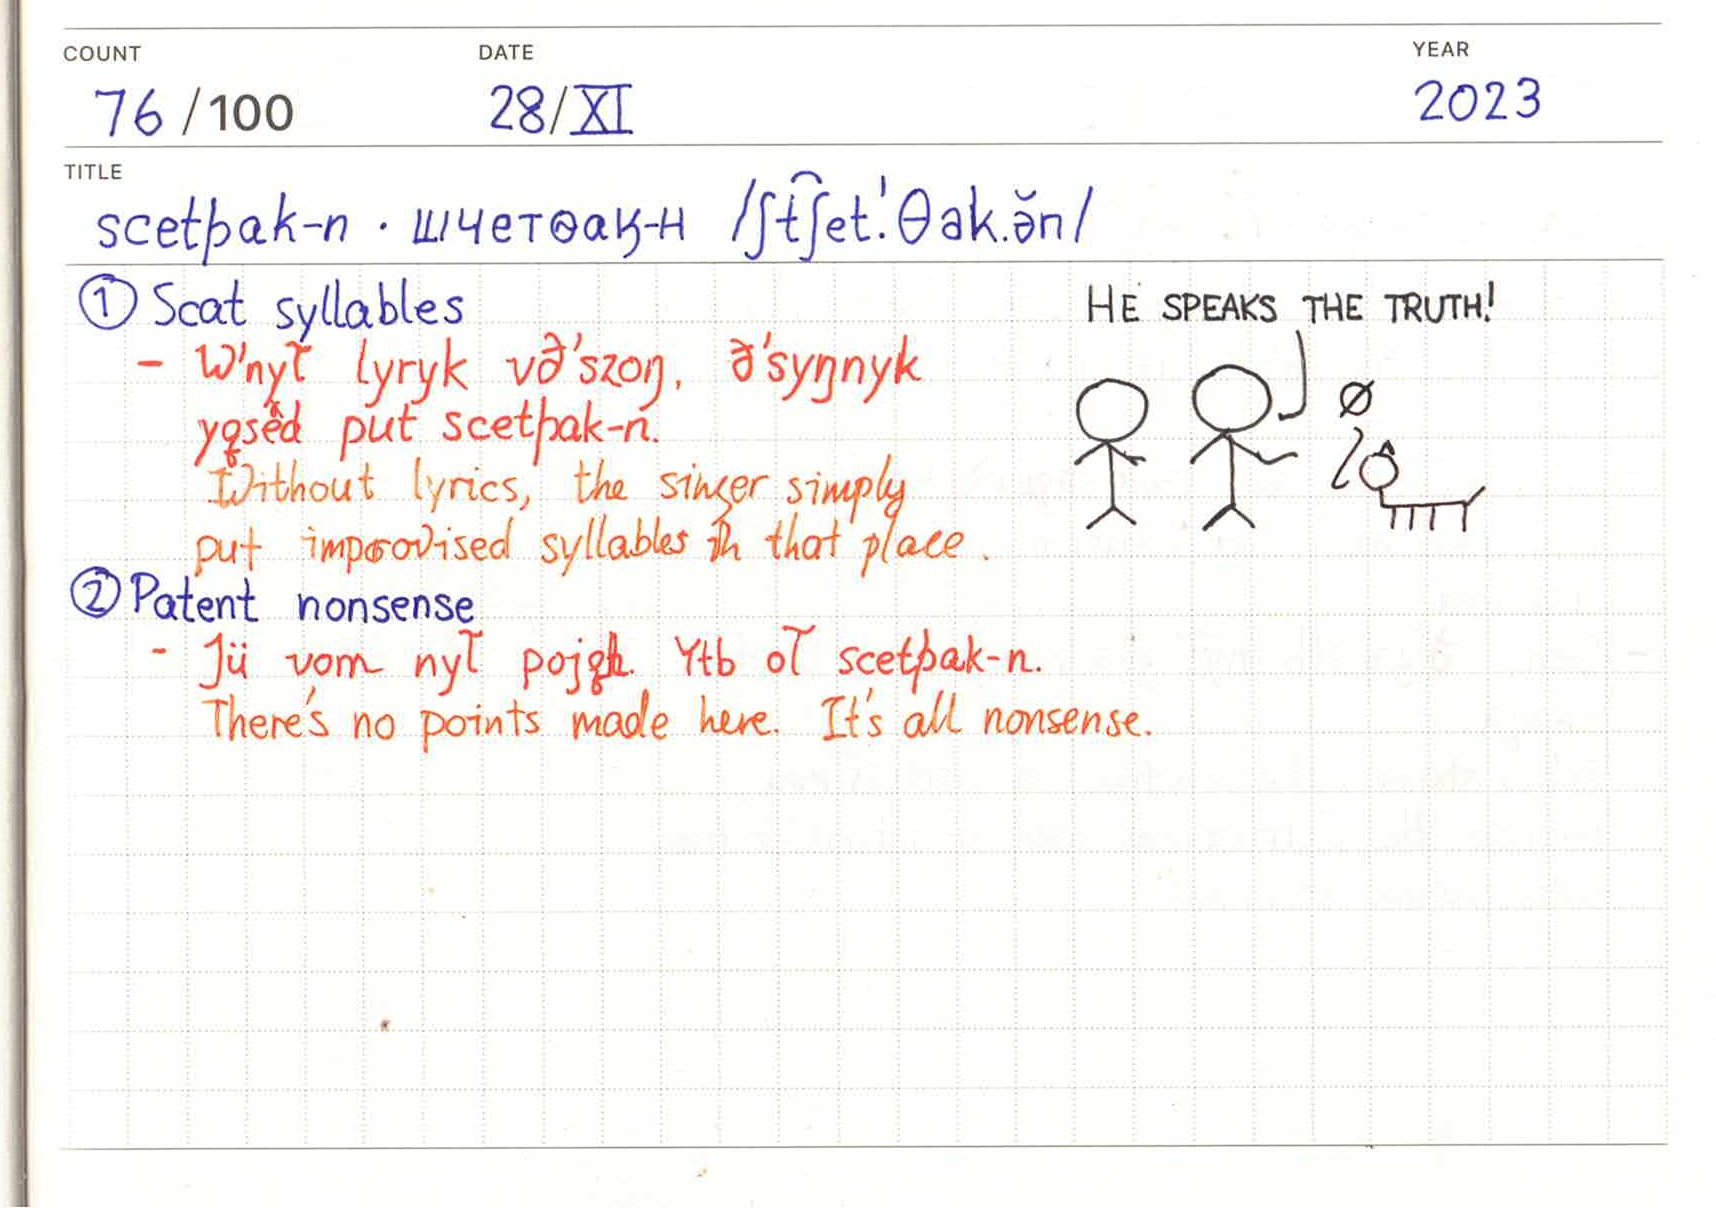 COUNT DATE YEAR
76 /100 28/XI 2023
TITLE
scetþak-n · шчетѳаӄ-н /ʃt͡ʃet.ˈθak.ə̆n/
① Scat syllables
HE SPEAKS THE TRUTH!
- W'nyt̃ lyryk vð'szoŋ, ð'syŋnyk
put scetþak-n.
Without lyrics, the singer simply
put improvised syllables in that place.
Ø
② Patent nonsense
- Jü vom nyt̃ Ytb ot̃ scetþak-n.
There's no points made here. It's all nonsense.